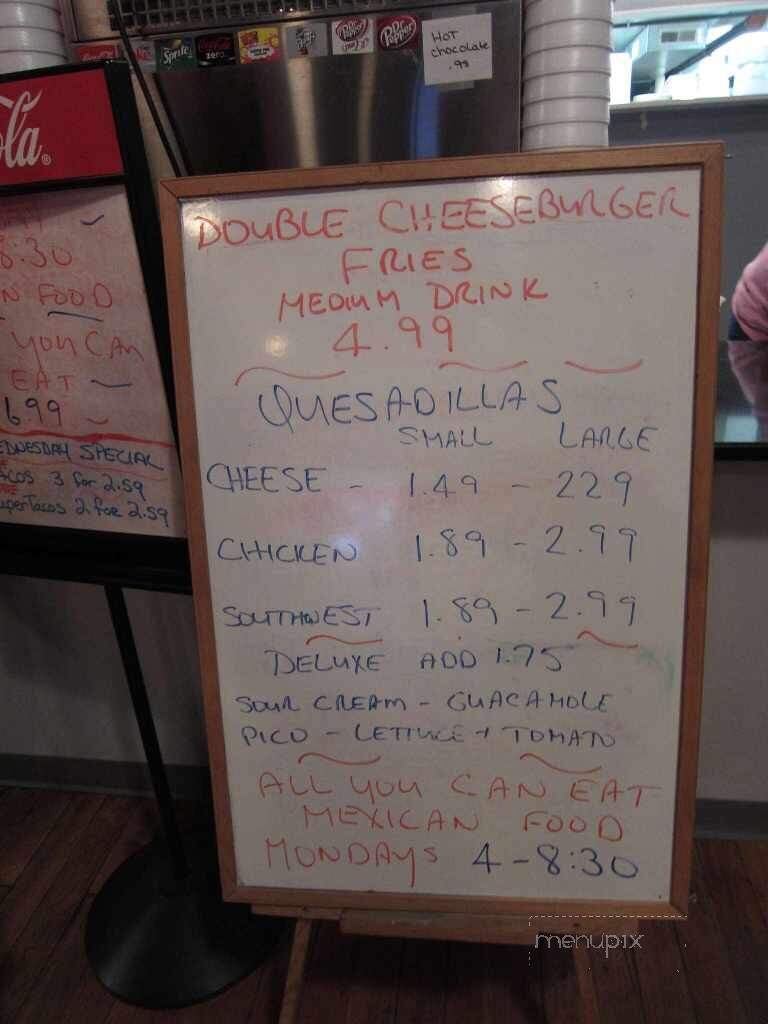 Sprite
zero
Dr Pepper
Dr Pepper
HOT
chocolate
.99
la®
8:30
N FOOD
YOU CAN
EAT
699
EDNESDAY SPECIAL
acos 3 for 2.59
uperTacos 2 for 2.59
DOUBLE CHEESEBURGER
FRIES
MEDIUM DRINK
4.99
QUESADILLAS
SMALL LARGE
CHEESE - 1.49 - 229
CHICKEN 1.89 - 2.99
SOUTHWEST 1.89 - 2.99
DELUXE ADD 1.75
SOUR CREAM - GUACAMOLE
PICO - LETTUCE + TOMATO
ALL YOU CAN EAT
MEXICAN FOOD
MONDAYS 4-8:30
menupix